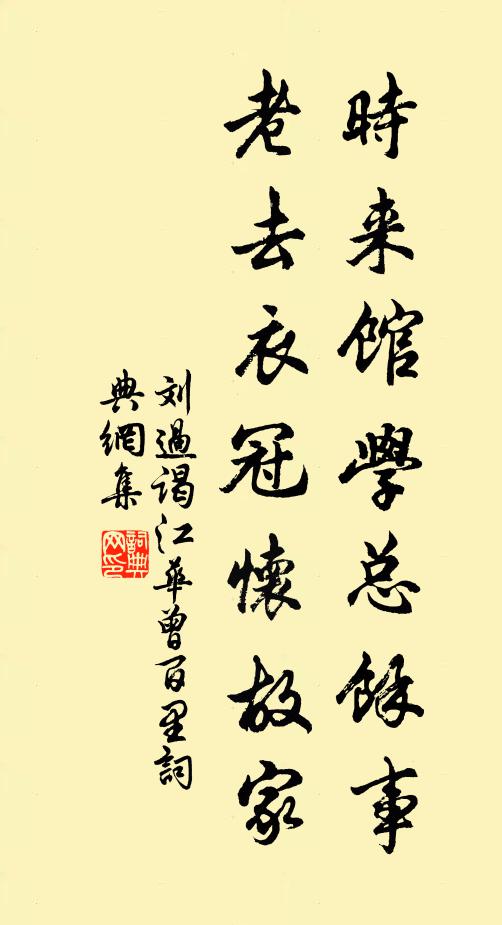 時来館學总餘事
老去衣冠懷故家
刘過谒江華曾百里詞
典網集
詞典网印